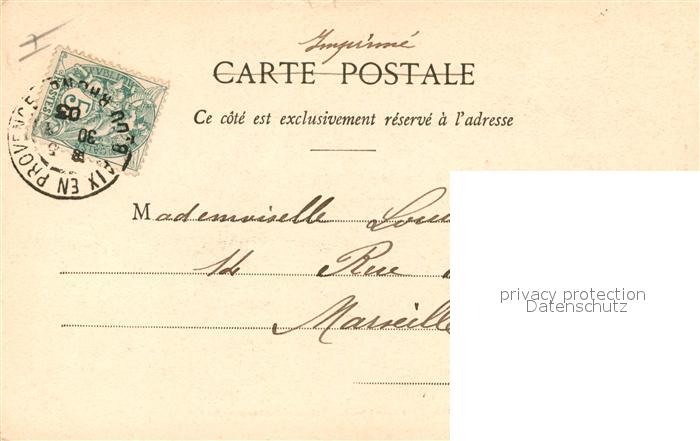 Imprimé
CARTE POSTALE
Ce côté est exclusivement réservé à l'adresse
AIX EN PROVENCE
B DU RHONE
8
30
5
03
5
Mademoiselle Lou
14 Rue
Marseille
privacy protection
Datenschutz